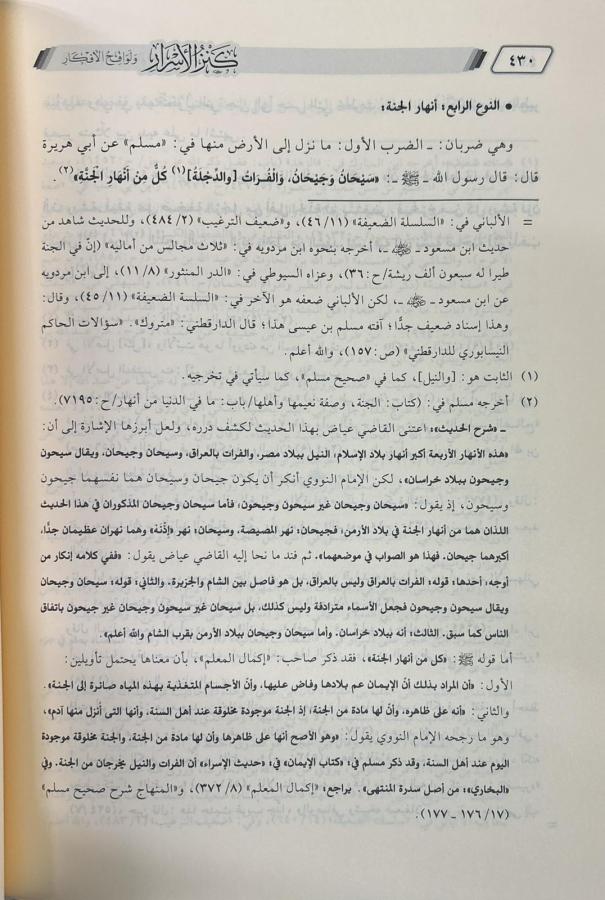 ٤٣٠
كنز الأسرار ولواقح الأفكار
• النوع الرابع: أنهار الجنة:
وهي ضربان: ـ الضرب الأول: ما نزل إلى الأرض منها في: «مسلم» عن أبي هريرة
قال: قال رسول الله ـ ﷺ ـ: «سَيْحَانُ وَجَيْحَانُ، وَالْفُرَاتُ [والدِّجْلَةُ](١) كُلٌّ مِن أَنْهَارِ الجَنَّةِ»(٢).
= الألباني في: «السلسلة الضعيفة» (٤٦/١١)، و«ضعيف الترغيب» (٤٨٤/٢)، وللحديث شاهد من
حديث ابن مسعود ـ ـ، أخرجه بنحوه ابن مردويه في: «ثلاث مجالس من أماليه» (إنّ في الجنة
طيرا له سبعون ألف ريشة/ح: ٣٦)، وعزاه السيوطي في: «الدر المنثور» (١١/٨)، إلى ابن مردويه
عن ابن مسعود ـ ـ، لكن الألباني ضعفه هو الآخر في: «السلسة الضعيفة» (٤٥/١١)، وقال:
وهذا إسناد ضعيف جدًّا؛ آفته مسلم بن عيسى هذا؛ قال الدارقطني: «متروك». «سؤالات الحاكم
النيسابوري للدارقطني» (ص: ١٥٧)، والله أعلم.
(١) الثابت هو: [والنيل]، كما في «صحيح مسلم»، كما سيأتي في تخرجيه.
(٢) أخرجه مسلم في: (كتاب: الجنة، وصفة نعيمها وأهلها/باب: ما في الدنيا من أنهار/ح: ٧١٩٥).
ـ «شرح الحديث»: اعتنى القاضي عياض بهذا الحديث لكشف درره، ولعل أبرزها الإشارة إلى أن:
«هذه الأنهار الأربعة أكبر أنهار بلاد الإسلام، النيل ببلاد مصر، والفرات بالعراق، وسيحان وجيحان، ويقال سيحون
وجيحون ببلاد خراسان»، لكن الإمام النووي أنكر أن يكون جيحان وسيحان هما نفسهما جيحون
وسيحون، إذ يقول: «سيحان وجيحان غير سيحون وجيحون؛ فأما سيحان وجيحان المذكوران في هذا الحديث
اللذان هما من أنهار الجنة في بلاد الأرمن، فجيحان: نهر المصيصة، وسيحان: نهر «إذْنَة» وهما نهران عظيمان جدًّا،
أكبرهما جيحان. فهذا هو الصواب في موضعهما»، ثم فند ما نحا إليه القاضي عياض يقول: «ففي كلامه إنكار من
أوجه، أحدها: قوله: الفرات بالعراق وليس بالعراق، بل هو فاصل بين الشام والجزيرة. والثاني: قوله: سيحان وجيحان
ويقال سيحون وجيحون فجعل الأسماء مترادفة وليس كذلك، بل سيحان غير سيحون وجيحان غير جيحون باتفاق
الناس كما سبق. الثالث: أنه ببلاد خراسان، وأما سيحان وجيحان ببلاد الأرمن بقرب الشام والله أعلم».
أما قوله ﷺ: «كل من أنهار الجنة»، فقد ذكر صاحب: «إكمال المعلم»، بأن معناها يحتمل تأويلين:
الأول: «أن المراد بذلك أنّ الإيمان عم بلادها وفاض عليها، وأنّ الأجسام المتغذية بهذه المياه صائرة إلى الجنة».
والثاني: «أنه على ظاهره، وأن لها مادة من الجنة؛ إذ الجنة موجودة مخلوقة عند أهل السنة، وأنها التى أنزل منها آدم»،
وهو ما رجحه الإمام النووي يقول: «وهو الأصح أنها على ظاهرها وأن لها مادة من الجنة، والجنة مخلوقة موجودة
اليوم عند أهل السنة، وقد ذكر مسلم في: «كتاب الإيمان» في: «حديث الإسراء» أن الفرات والنيل يخرجان من الجنة، وفي
«البخاري»: من أصل سدرة المنتهى». يراجع: «إكمال المعلم» (٣٧٢/٨)، و«المنهاج شرح صحيح مسلم»
(١٧/ ١٧٦ ـ ١٧٧).